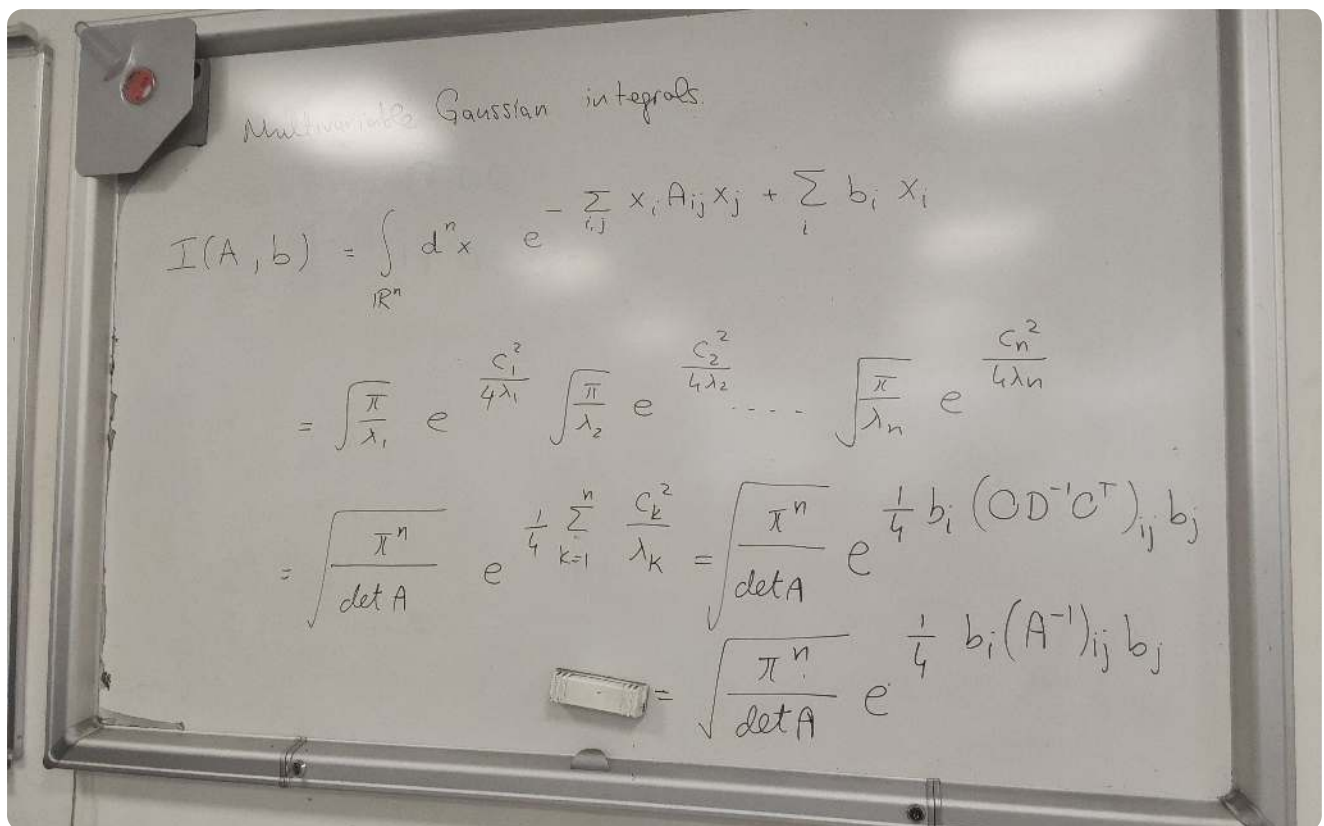 Multivariable Gaussian integrals.
I(A, b) = ∫_{ℝⁿ} dⁿx e^{- Σ_{i,j} x_i A_{ij} x_j + Σ_i b_i x_i}
= √(π/λ₁) e^{c₁²/4λ₁} √(π/λ₂) e^{c₂²/4λ₂} ---- √(π/λₙ) e^{cₙ²/4λₙ}
= √(πⁿ/det A) e^{1/4 Σ_{k=1}^{n} c_k²/λ_k} = √(πⁿ/det A) e^{1/4 b_i (CD⁻¹Cᵀ)_{ij} b_j}
= √(πⁿ/det A) e^{1/4 b_i (A⁻¹)_{ij} b_j}